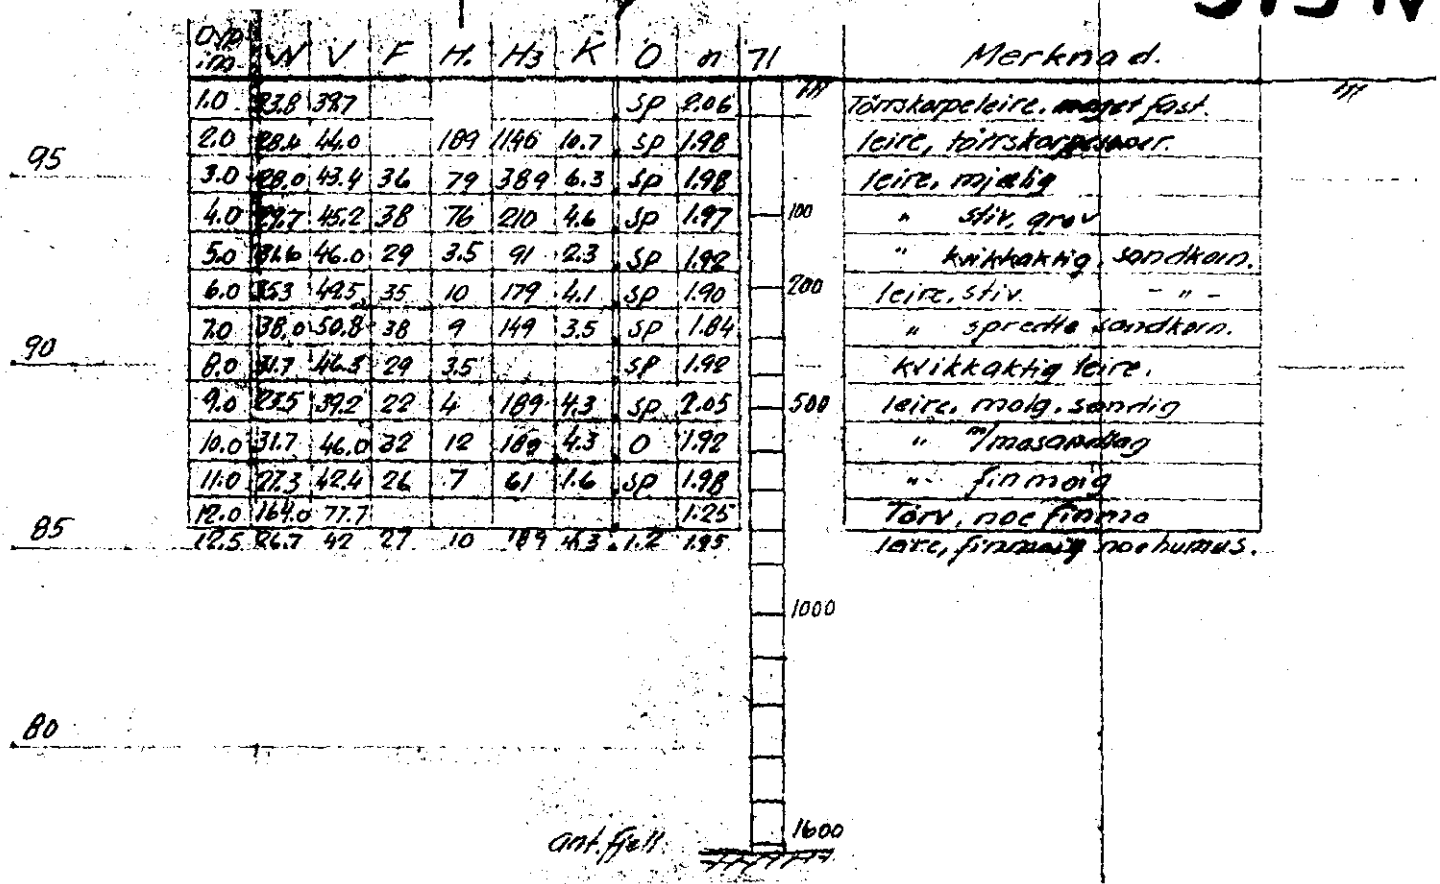 Dyp i m. W V F H1 H3 K O n 71 Merknad.
1.0 23.8 39.7 sp 2.06 Tørrskorpeleire. meget fast.
2.0 28.4 44.0 189 1146 10.7 sp 1.98 leire, tørrskorpe
95
3.0 28.0 43.4 36 79 389 6.3 sp 1.98 leire, mjælig
4.0 29.7 45.2 38 76 210 4.6 sp 1.97 100 " stiv, grov
5.0 31.6 46.0 29 3.5 91 2.3 sp 1.92 " kvikkaktig, sandkorn.
6.0 35.3 49.5 35 10 179 4.1 sp 1.90 200 leire, stiv. - " -
7.0 38.0 50.8 38 9 149 3.5 sp 1.84 " spredte sandkorn.
90
8.0 31.7 46.3 29 3.5 sp 1.92 kvikkaktig leire.
9.0 23.5 39.2 22 4 189 4.3 sp 2.05 500 leire, molg. sandig
10.0 31.7 46.0 32 12 189 4.3 O 1.92 "
11.0 27.3 42.4 26 7 61 1.6 sp 1.98 " finmoig
12.0 164.0 77.7 1.25 Torv, noe finmo
85
12.5 26.7 42 27 10 189 4.3 1.2 1.95 leire, finmoig noe humus.
1000
80
1600
ant. fjell